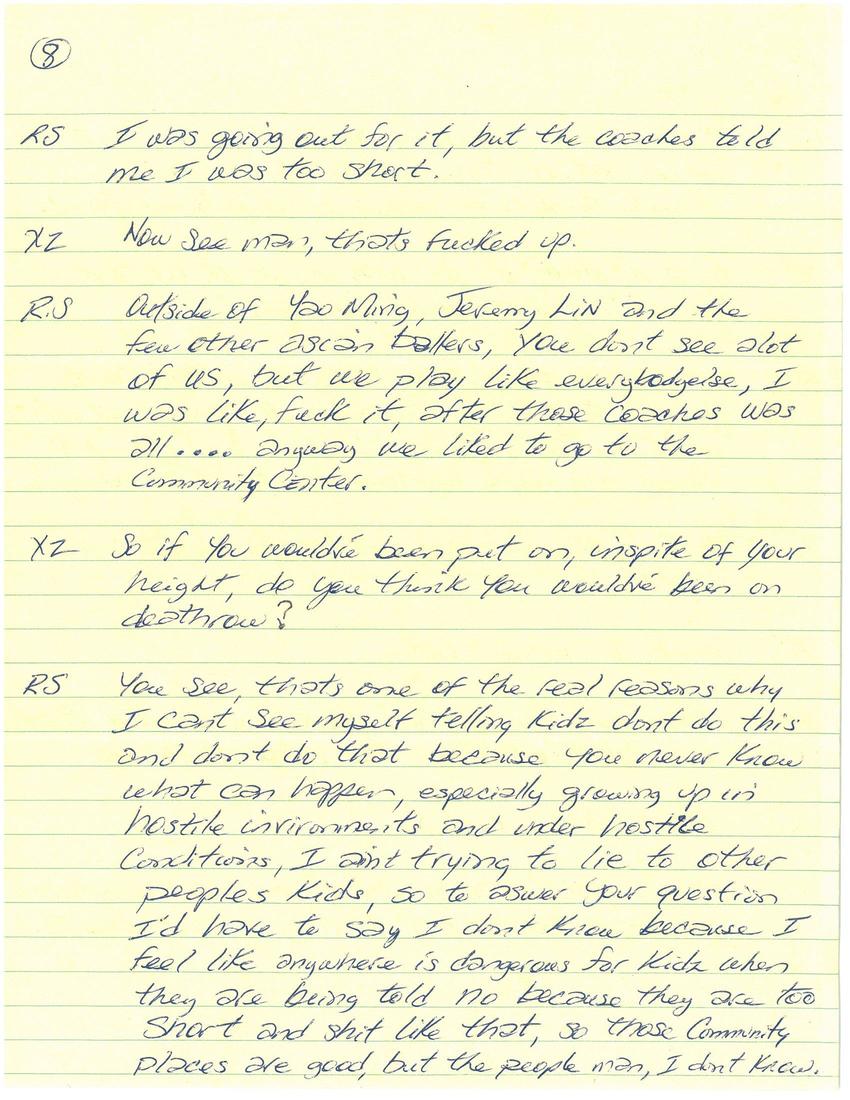 8
RS I was going out for it, but the coaches told
me I was too short.
XZ Now see man, thats fucked up.
R.S Outside of Yao Ming, Jeremy LiN and the
few other ascian ballers, you dont see alot
of us, but we play like everybodyelse, I
was like, fuck it, after those coaches was
all.... anyway we liked to go to the
Community Center.
XZ So if you wouldvé been put on, inspite of your
height, do you think you wouldvé been on
deathrow?
RS You see, thats one of the real reasons why
I cant see myself telling Kidz dont do this
and dont do that because you never know
what can happen, especially growing up in
hostile invironments and under hostile
Conditions, I aint trying to lie to other
peoples Kids, so to aswer your question
I'd have to say I dont know because I
feel like anywhere is dangerous for Kidz when
they are being told no because they are too
short and shit like that, so those Community
places are good, but the people man, I dont know.